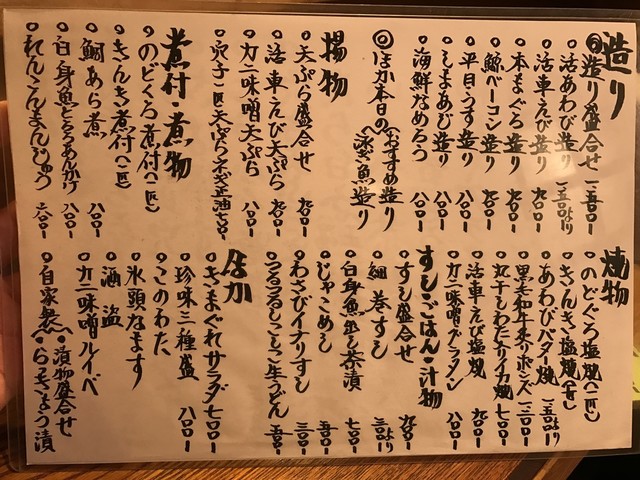 造り
◎造り盛合せ 一五〇〇より
活あわび造り 一五〇〇より
活車えび造り 九〇〇
本まぐろ造り 九〇〇
鯨ベーコン造り 九〇〇
平目・うす造り 八〇〇
しまあじ造り 八〇〇
海鮮なめろう 八〇〇
◎ほか本日の（おすすめ造り 活魚造り
揚物
天ぷら盛合せ 九〇〇
活車えび天ぷら 九〇〇
カニ味噌天ぷら 八〇〇
穴子一匹天ぷらネギ正油 七〇〇
煮付・煮物
のどくろ煮付（一匹）
きんき煮付（一匹）
鯛あら煮 八〇〇
白身魚とろろあんかけ 八〇〇
れんこんまんじゅう 六〇〇
焼物
のどぐろ塩焼（一匹）
きんき塩焼（一匹）
あわびバター焼 一五〇〇より
黒毛和牛炙りポンズ 一三〇〇
丸干しわたりイカ焼 七〇〇
活車えび塩焼 九〇〇
カニ味噌グラタン 八〇〇
すし・ごはん・汁物
すし盛合せ 九〇〇
細巻すし 三〇〇より
白身魚だし茶漬 七〇〇
じゃこめし 五〇〇
わさびイナリすし 三〇〇
つるつるしこしこ生うどん 五〇〇
ほか
きまぐれサラダ 七〇〇
珍味三種盛 八〇〇
このわた
氷頭なます
酒盗
カニ味噌ルイベ
自家製・漬物盛合せ・らっきょう漬